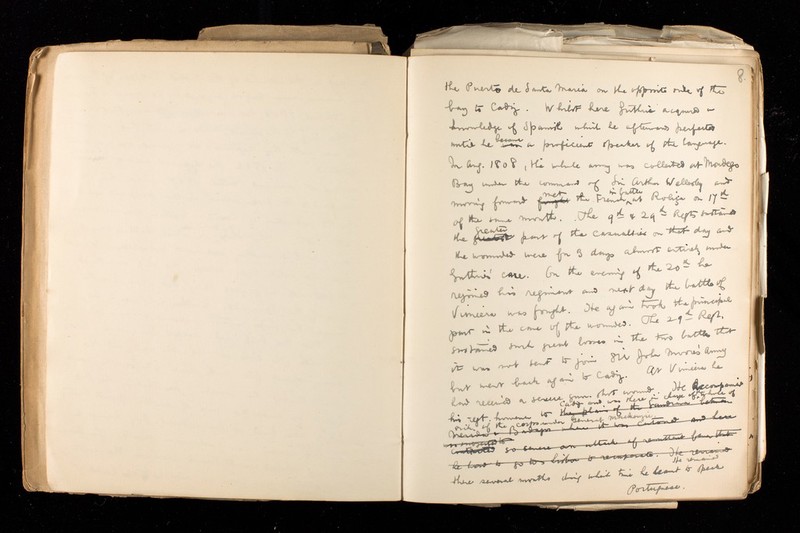 8.
the Puerto de Santa Maria on the opposite side of the
bay to Cadiz. Whilst here Guthrie acquired a
knowledge of Spanish which he afterwards perfected
until he became a proficient speaker of the language.
In Aug. 1808, the whole army was collected at Mondego
Bay under the command of Sir Arthur Wellesley and
moving forward fought met the French in battle at Roliça on 17th
of the same month. The 9th & 29th Regts sustained
the greatest greater part of the casualties on that day and
the wounded were for 3 days almost entirely under
Guthrie's care. On the evening of the 20th he
rejoined his regiment and next day the battle of
Vimiera was fought. He again took the principal
part in the care of the wounded. The 29th Regt.
sustained such great losses in the two battles that
it was not sent to join Sir John Moore's army
but went back again to Cadiz. At Vimiera he
had received a severe gun shot wound. He accompanied
his regt. however to Cadiz and was there in charge of
the plain of the between
of the corps under General Mackenzie
Badajos where it was and here
so severe an attack of remittent fever that
he had to go to Lisbon to recuperate. He remained He remained
there several months during which time he learnt to speak
Portuguese.